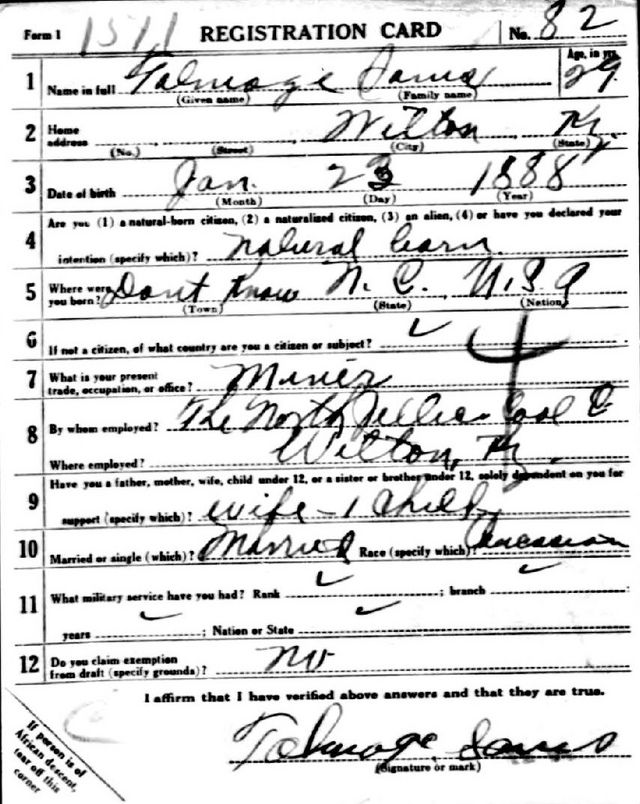 Form 1 1511 REGISTRATION CARD No. 82
1 Name in full Talmage Age, in yrs. 29
(Given name) (Family name)
2 Home address Wilton Ky.
(No.) (Street) (City) (State)
3 Date of birth Jan. 23 1888
(Month) (Day) (Year)
4 Are you (1) a natural-born citizen, (2) a naturalized citizen, (3) an alien, (4) or have you declared your
intention (specify which)? natural born
5 Where were you born? Dont know N. C. U.S.A
(Town) (State) (Nation)
6 If not a citizen, of what country are you a citizen or subject? ✓
7 What is your present trade, occupation, or office? Miner
8 By whom employed? The North Jellico Coal C
Where employed? Wilton, Ky.
9 Have you a father, mother, wife, child under 12, or a sister or brother under 12, solely dependent on you for
support (specify which)? wife - 1 child
10 Married or single (which)? Married Race (specify which)? Caucasian
11 What military service have you had? Rank ✓ ; branch ✓
years ✓ ; Nation or State ✓
12 Do you claim exemption from draft (specify grounds)? No
I affirm that I have verified above answers and that they are true.
Talmage
(Signature or mark)
If person is of
African descent,
tear off this
corner